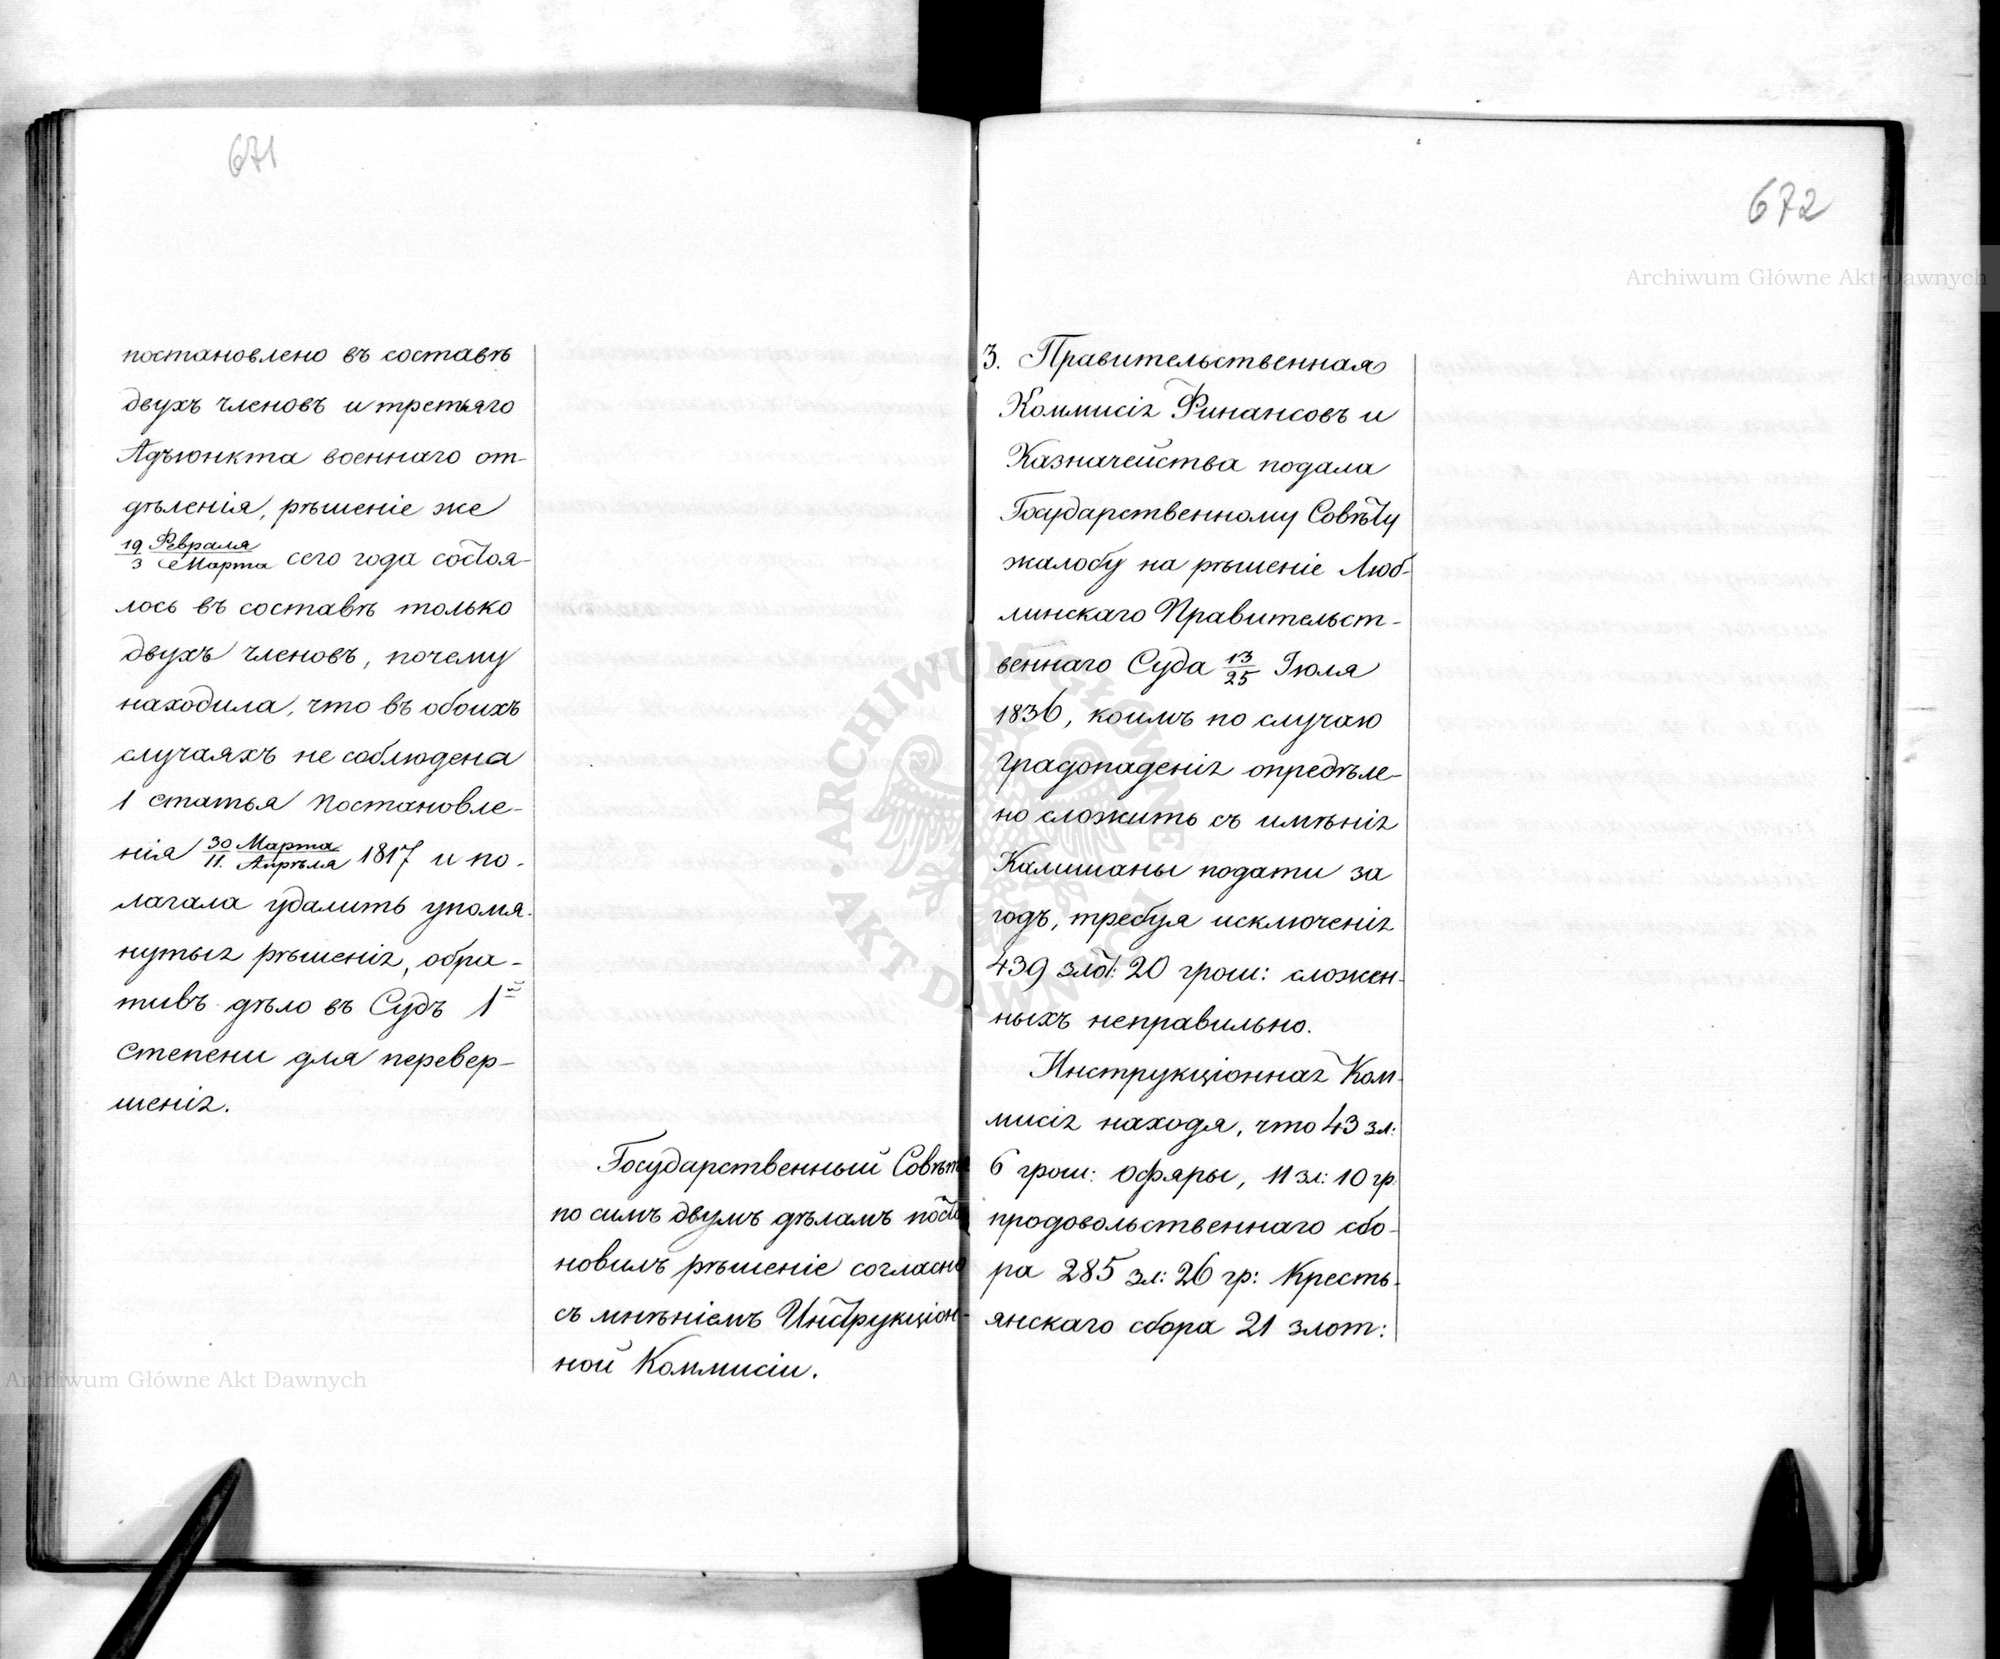 671
постановлено въ составѣ
двухъ членовъ и третьяго
Адъюнкта военнаго от-
дѣленія, рѣшеніе же
19 Февраля / 3 Марта сего года состоя-
лось въ составѣ только
двухъ членовъ, почему
находила, что въ обоихъ
случаяхъ не соблюдена
1 статья Постановле-
нія 30 Марта / 11. Апрѣля 1817 и по-
лагала удалить упомя-
нутыя рѣшенія, обра-
тивъ дѣло въ Судъ 1й
степени для перевер-
шенія.
Государственный Совѣтъ
по симъ двумъ дѣламъ поста
новилъ рѣшеніе согласно
съ мнѣніемъ Инструкціон-
ной Коммисіи.
672
3. Правительственная
Коммисія Финансовъ и
Казначейства подала
Государственному Совѣту
жалобу на рѣшеніе Люб-
линскаго Правительст-
веннаго Суда 13/25 Іюля
1836, коимъ по случаю
градопаденія опредѣле-
но сложить съ имѣнія
Калишаны подати за
годъ, требуя исключенія
439 злот: 20 грош: сложен-
ныхъ неправильно.
Инструкціонная Ком-
мисія находя, что 43 зл:
6 грош: офяры, 11 зл: 10 гр.
продовольственнаго сбо-
ра 285 зл: 26 гр: Кресть-
янскаго сбора 21 злот:
Archiwum Główne Akt Dawnych
Archiwum Główne Akt Dawnych
ARCHIWUM GŁÓWNE AKT DAWNYCH